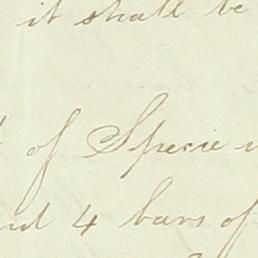 it shall be
of Specie
4 bars of